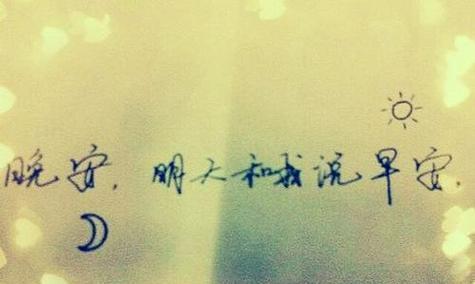 晚安，明天和我说早安.